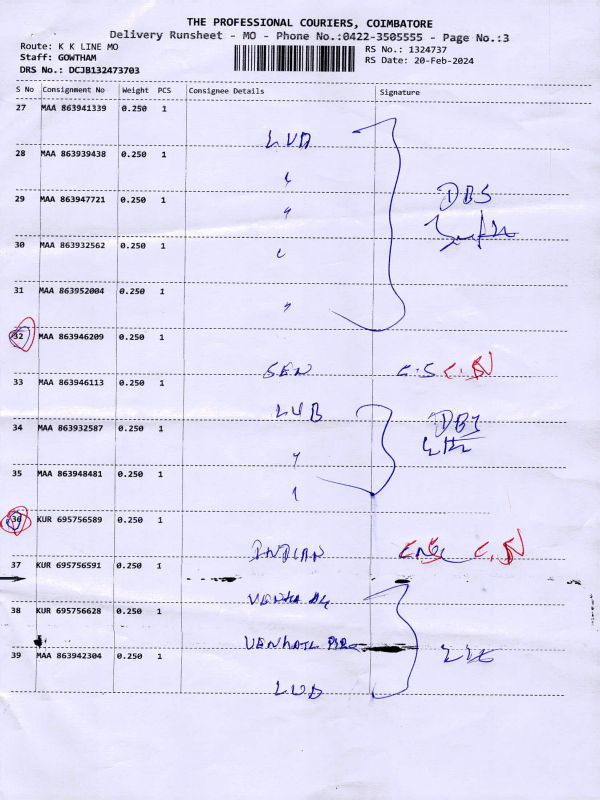 THE PROFESSIONAL COURIERS, COIMBATORE
Delivery Runsheet - MO - Phone No.:0422-3505555 - Page No.:3
Route: K K LINE MO
RS No.: 1324737
Staff: GOWTHAM
RS Date: 20-Feb-2024
DRS No.: DCJB132473703
S No Consignment No Weight PCS Consignee Details Signature
27 MAA 863941339 0.250 1
28 MAA 863939438 0.250 1
29 MAA 863947721 0.250 1
DBS
30 MAA 863932562 0.250 1
31 MAA 863952004 0.250 1
32 MAA 863946209 0.250 1
SEN
33 MAA 863946113 0.250 1
34 MAA 863932587 0.250 1
35 MAA 863948481 0.250 1
36 KUR 695756589 0.250 1
INDIAN
37 KUR 695756591 0.250 1
38 KUR 695756628 0.250 1
39 MAA 863942304 0.250 1